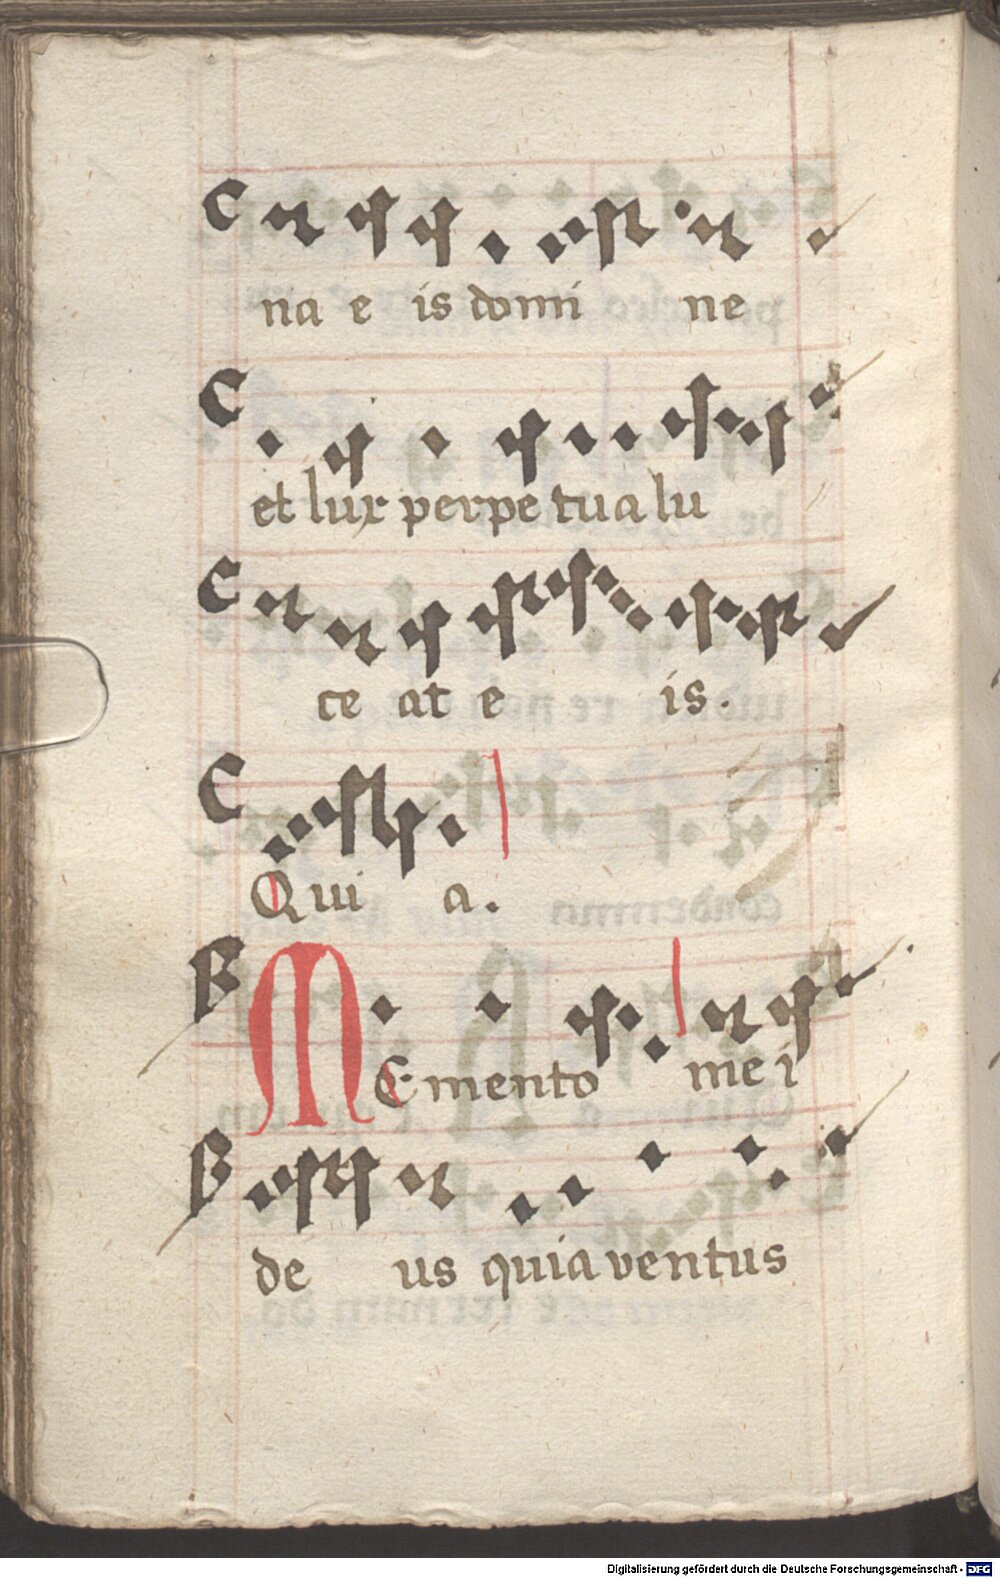 na e is domi ne
et lux perpe tua lu
ce at e is.
Qui a.
MEmento me i
de us quia ventus
Digitalisierung gefördert durch die Deutsche Forschungsgemeinschaft - DFG